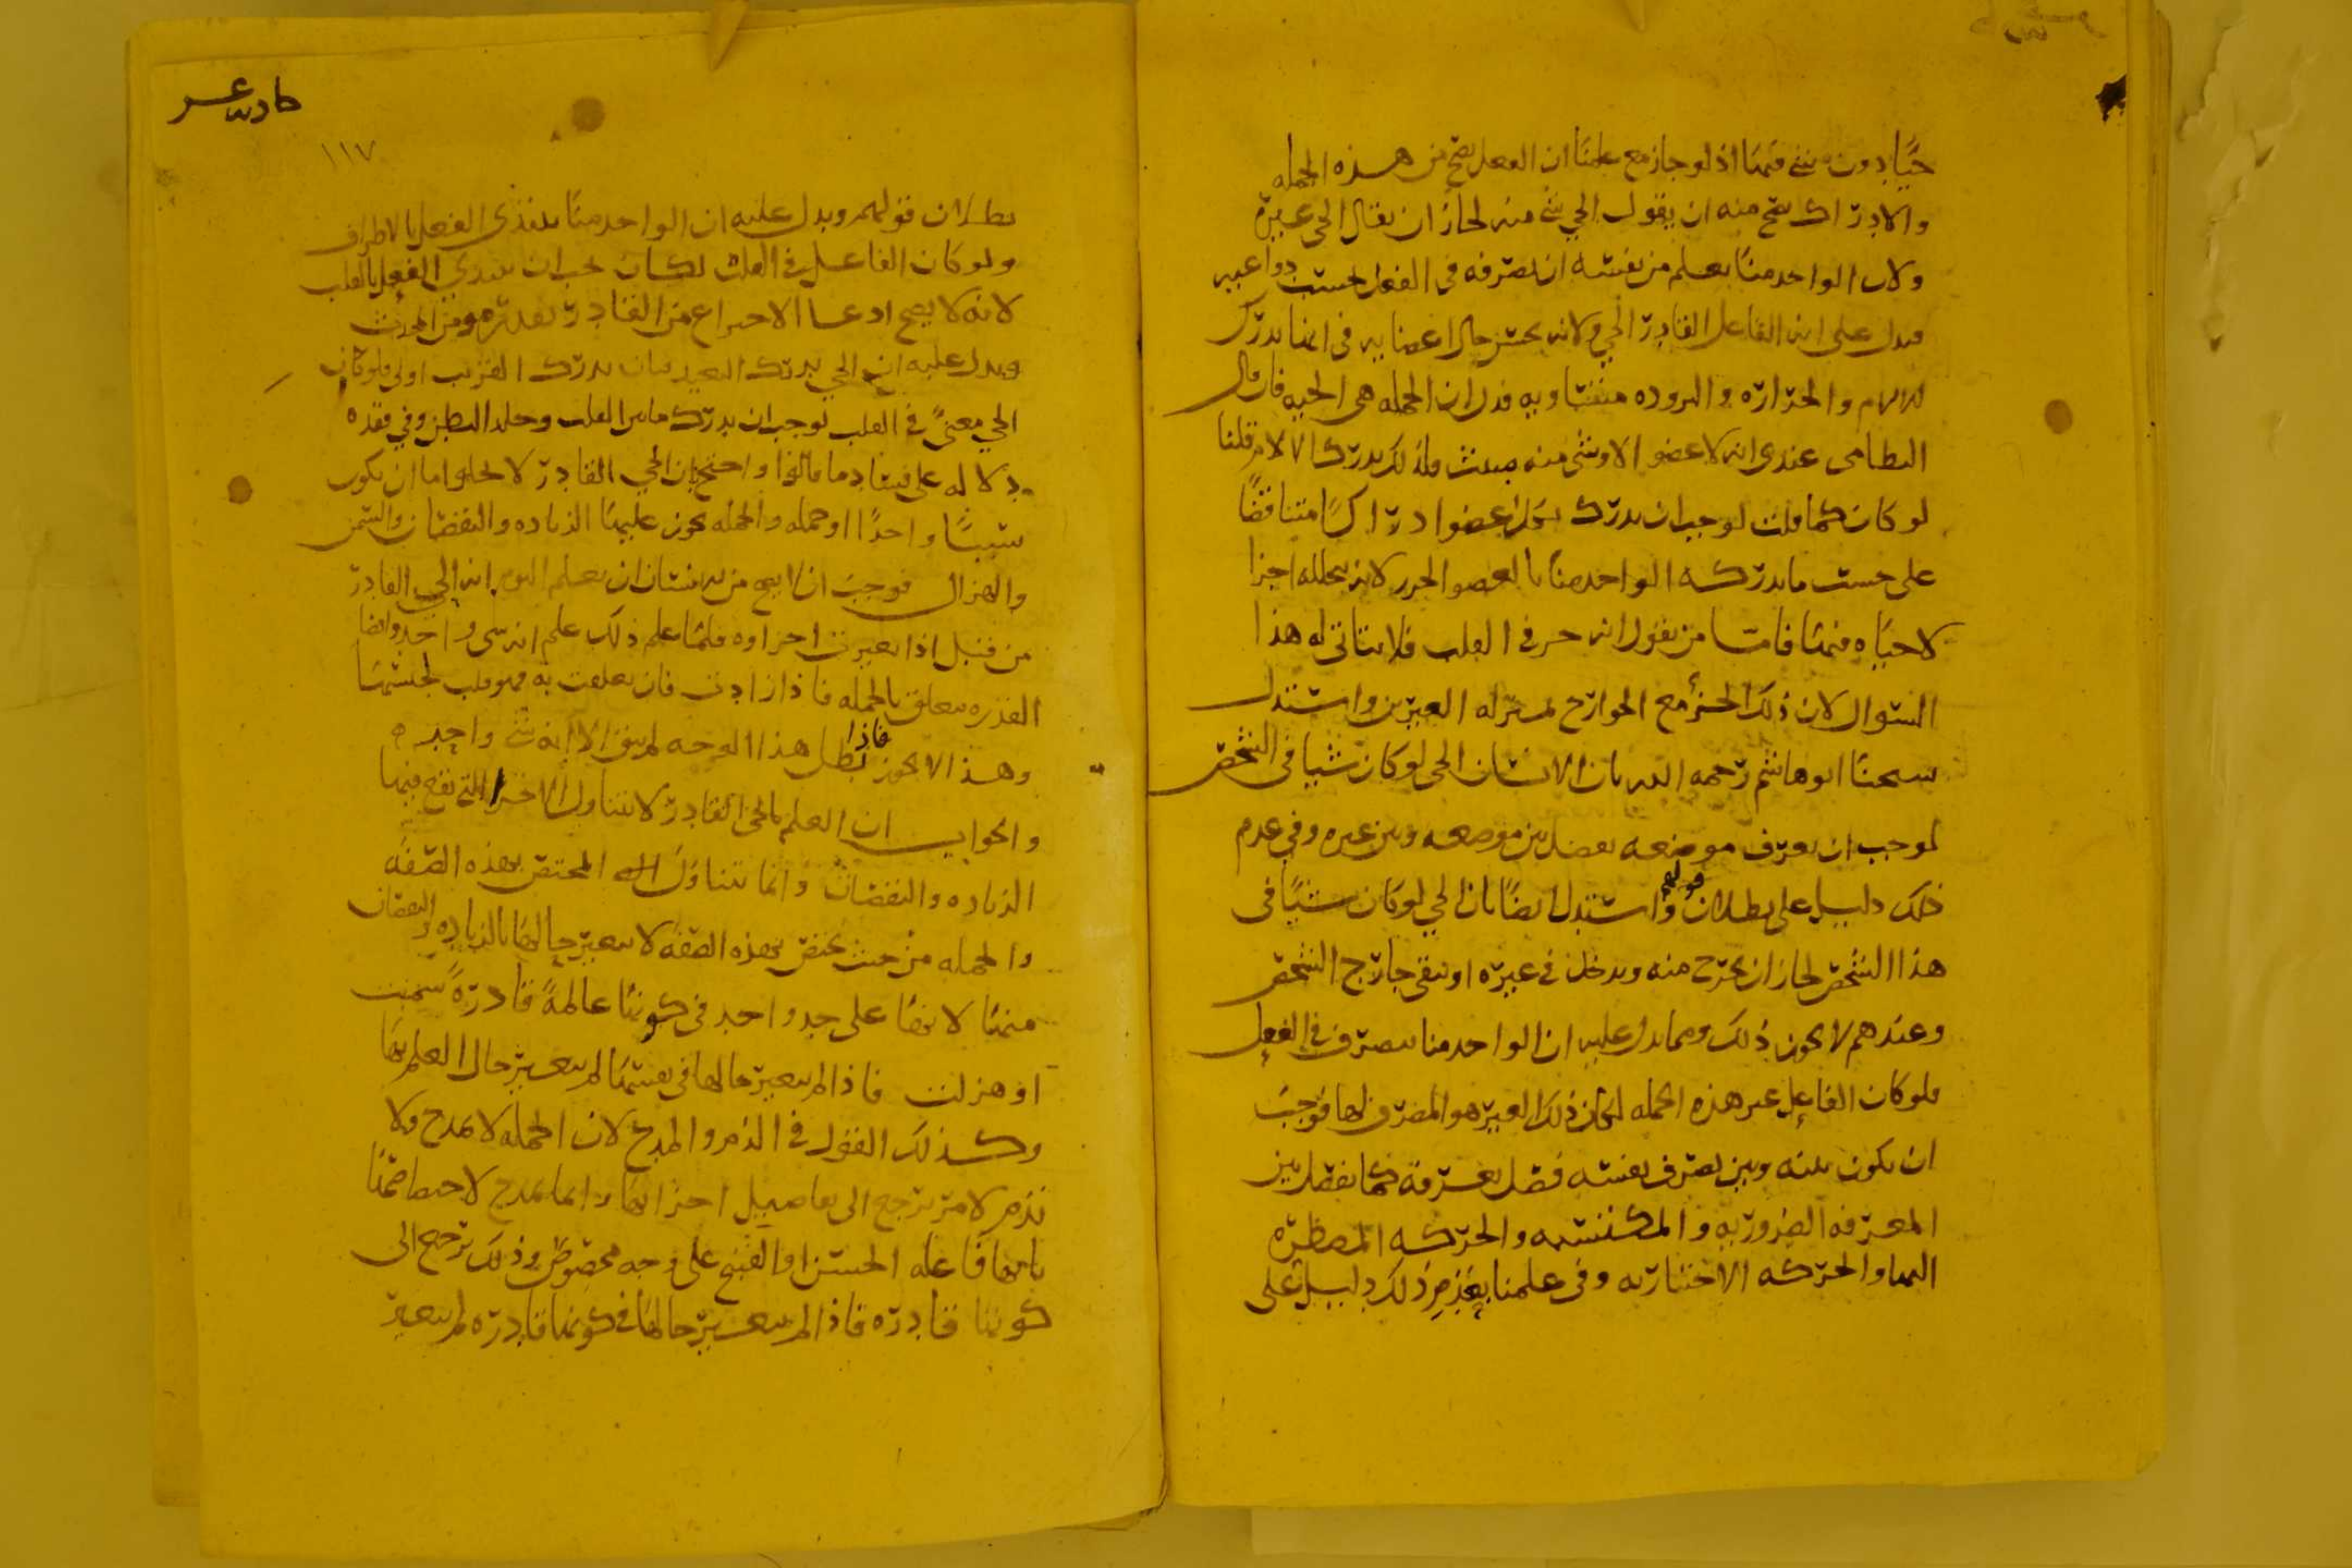 حيًا دون شي فيها اذ لو جاز مع علمنا ان الفعل يصح من هذه الجمله
والادراك يصح منه ان يقول الحي شي منه لجاز ان يقال الحي غيره
ولان الواحد منا يعلم من نفسه ان تصرفه في الفعل بحسب دواعيه
فيدل على انه الفاعل القادر الحي ولانه يحس حال اعضايه في انها تدرك
الالام والحرارة والبروده متساويه فدل ان الجمله هي الحيه فان قال
النظامي عندي انه لا عضو الا وشي منه مبثوث فلذلك يدرك الالام قلنا
لو كان كما قلت لوجب ان يدرك بكل عضو ادراكًا متناقضًا
على حسب ما يدركه الواحد منا بالعضو الخدر لانه يتخلله اجزا
لا حياه فيها فاما من يقول انه جزء في القلب فلا يتاتى له هذا
السوال لان ذلك الجزء مع الجوارح بمنزله الغيرين واستدل
شيخنا ابو هاشم رحمه الله بان الانسان الحي لو كان شيا في الشخص
لوجب ان يعرف موضعه يفصل بين موضعه وبين غيره وفي عدم
ذلك دليل على بطلان قولهم واستدل ايضًا بان الحي لو كان شيًا في
هذا الشخص لجاز ان يخرج منه ويدخل في غيره او يبقى خارج الشخص
وعندهم لا يجوز ذلك ومما يدل عليه ان الواحد منا يتصرف في الفعل
فلو كان الفاعل غير هذه الجمله لكان ذلك الغير هو المصرف لها فوجب
ان يكون بينه وبين تصرف نفسه فصل يعرفه كما يفصل بين
المعرفه الضروريه والمكتسبه والحركه المضطره
اليها والحركه الاختياريه وفي علمنا بتعذر ذلك دليل على
١١٧
بطلان قولهم ويدل عليه ان الواحد منا يبتدي الفعل بالاطراف
ولو كان الفاعل في القلب لكان يجب ان يبتدي الفعل بالقلب
لانه لا يصح ادعا الاختراع من القادر بقدره هو من المحدث
ويدل عليه ان الحي يدرك البعيد فبان يدرك القريب اولى فلو كان
الحي معنى في القلب لوجب ان يدرك ما بين القلب وجلد البطن وفي فقده
دلاله على فساد ما قالوا واحتج بان الحي القادر لا يخلوا اما ان يكون
شيًا واحدًا او جمله والجمله يجوز عليها الزياده والنقصان والسمن
والهزال فوجب ان لا يصح من الانسان ان يعلم اليوم انه الحي القادر
من قبل اذا تغيرت اجزاوه فلما علم ذلك علم انه شي واحد وايضا
القدره تتعلق بالجمله فاذا زادت فان تعلقت به فهو قلب لجنسها
وهذا لا يجوز فاذا بطل هذا الوجه لم يبق الا انه شي واحد
والجواب ان العلم بالحي القادر لا يتناول الاجزا التي تقع فيها
الزياده والنقصان وانما يتناول المختص بهذه الصفه
والجمله من حيث تختص بهذه الصفه لا يتغير حالها بالزياده والنقصان
منها لانها على حد واحد في كونها عالمةً قادرةً سمنت
او هزلت فاذا لم يتغير حالها في نفسها لم يتغير حال العلم بها
وكذلك القول في الذم والمدح لان الجمله لا تمدح ولا
تذم لامر يرجع الى تفاصيل اجزايها وانما تمدح لاختصاصها
بانها فاعله الحسن او القبيح على وجه مخصوص وذلك يرجع الى
كونها قادره فاذا لم يتغير حالها في كونها قادره لم يتغير